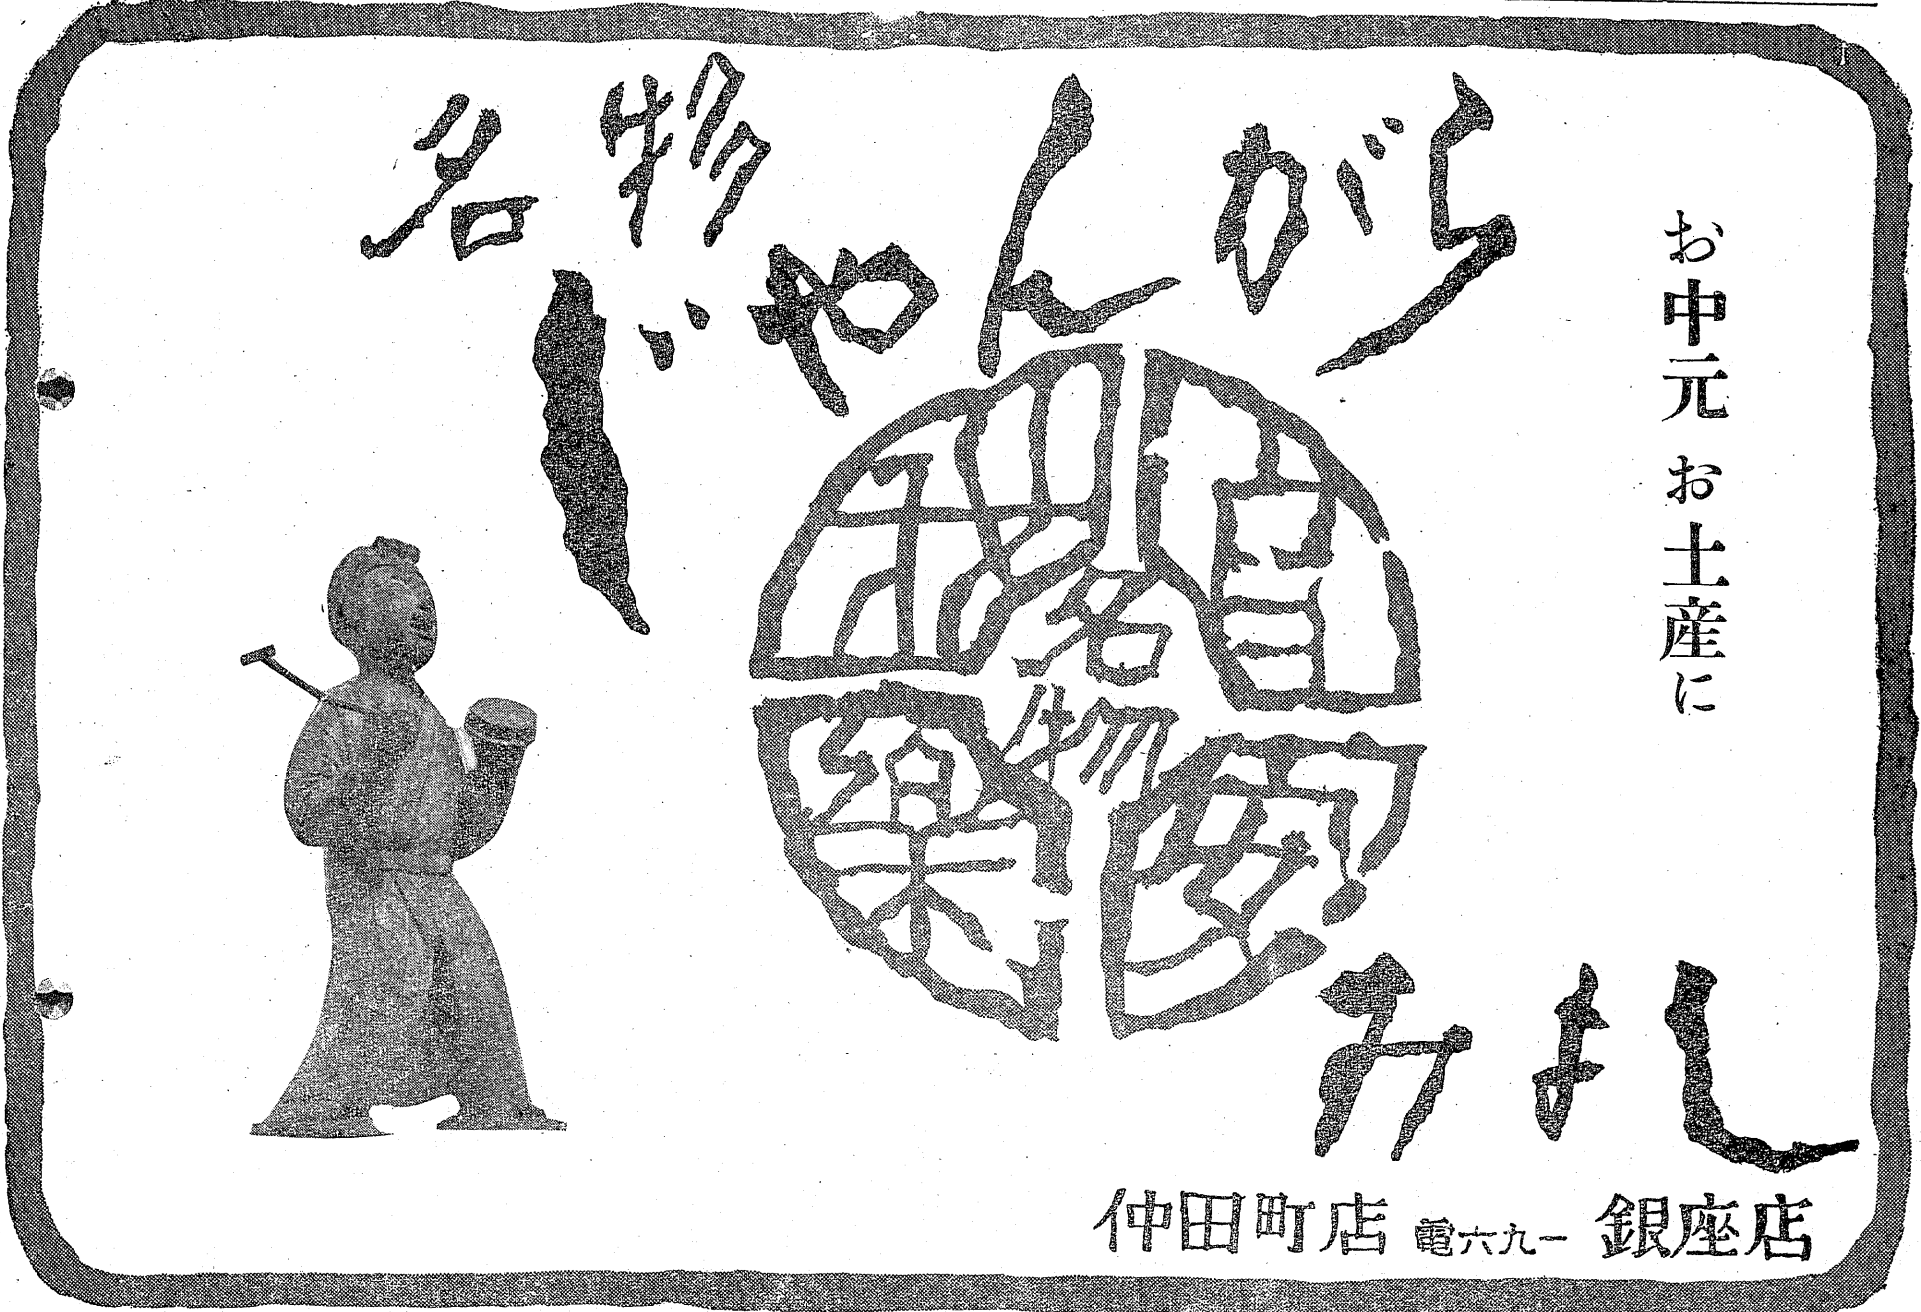 お中元お土産に
名物
じやんがら
名物
安
楽
みよし
仲田町店 電六九一 銀座店